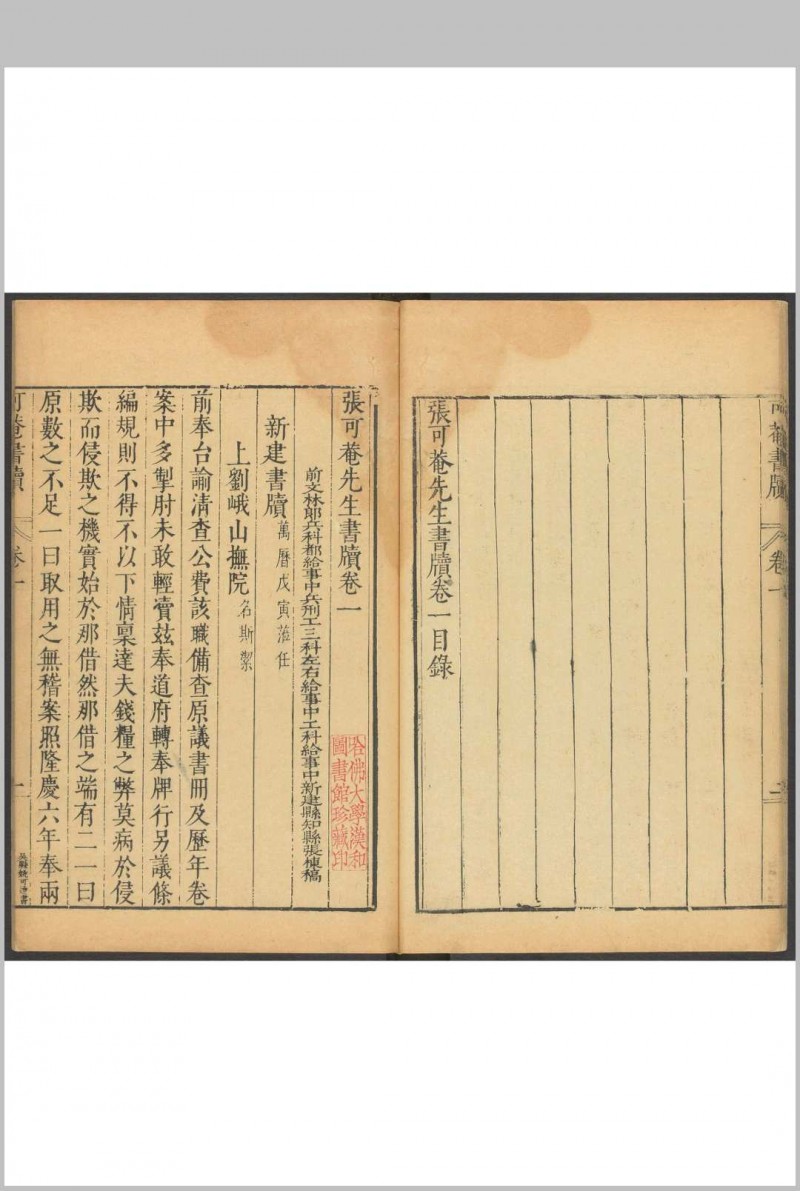 可菴書牘 卷一
張可菴先生書牘卷一目錄
張可菴先生書牘卷一
前文林郎兵科都給事中兵刑工三科左右給事中工科給事中新建縣知縣張棟稿
哈佛大學漢和
圖書館珍藏印
新建書牘 萬曆戊寅蒞任
上劉峨山撫院 名斯潔
前奉台諭清查公費該職備查原議書冊及歷年卷
案中多掣肘未敢輕瀆玆奉道府轉奉牌行另議條
編規則不得不以下情稟達夫錢糧之弊莫病於侵
欺而侵欺之機實始於那借然那借之端有二一曰
原數之不足一曰取用之無稽案照隆慶六年奉兩
可菴書牘 卷一 一